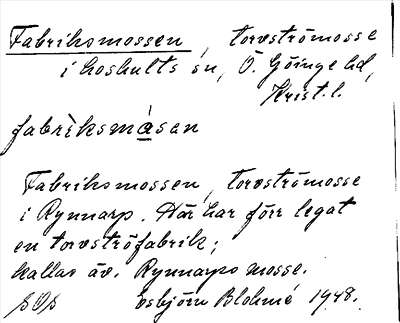 Fabriksmossen, torvströmosse
i Loshults sn, Ö. Göinge hd,
Krist. l.
fabrìksmǻsan
Fabriksmossen, torvströmosse
i Rynnarp. Här har förr legat
en torvströfabrik;
kallas äv. Rynnarps mosse.
Esbjörn Blohmé 1948.